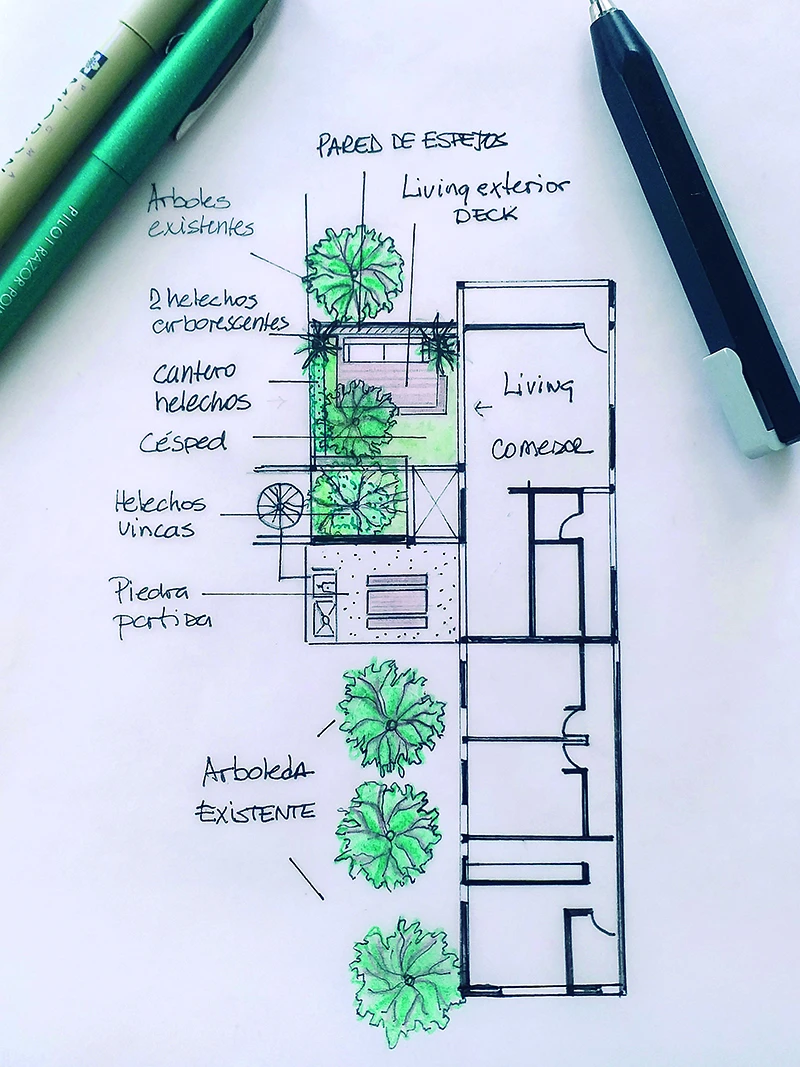 PIGMA
MICRON
PILOT RAZOR POI
PARED DE ESPEJOS
Arboles
existentes
Living exterior
DECK
2 helechos
arborescentes
cantero
helechos
Césped
Living
COMEDOR
Helechos
vincas
Piedra
partida
Arboleda
EXISTENTE